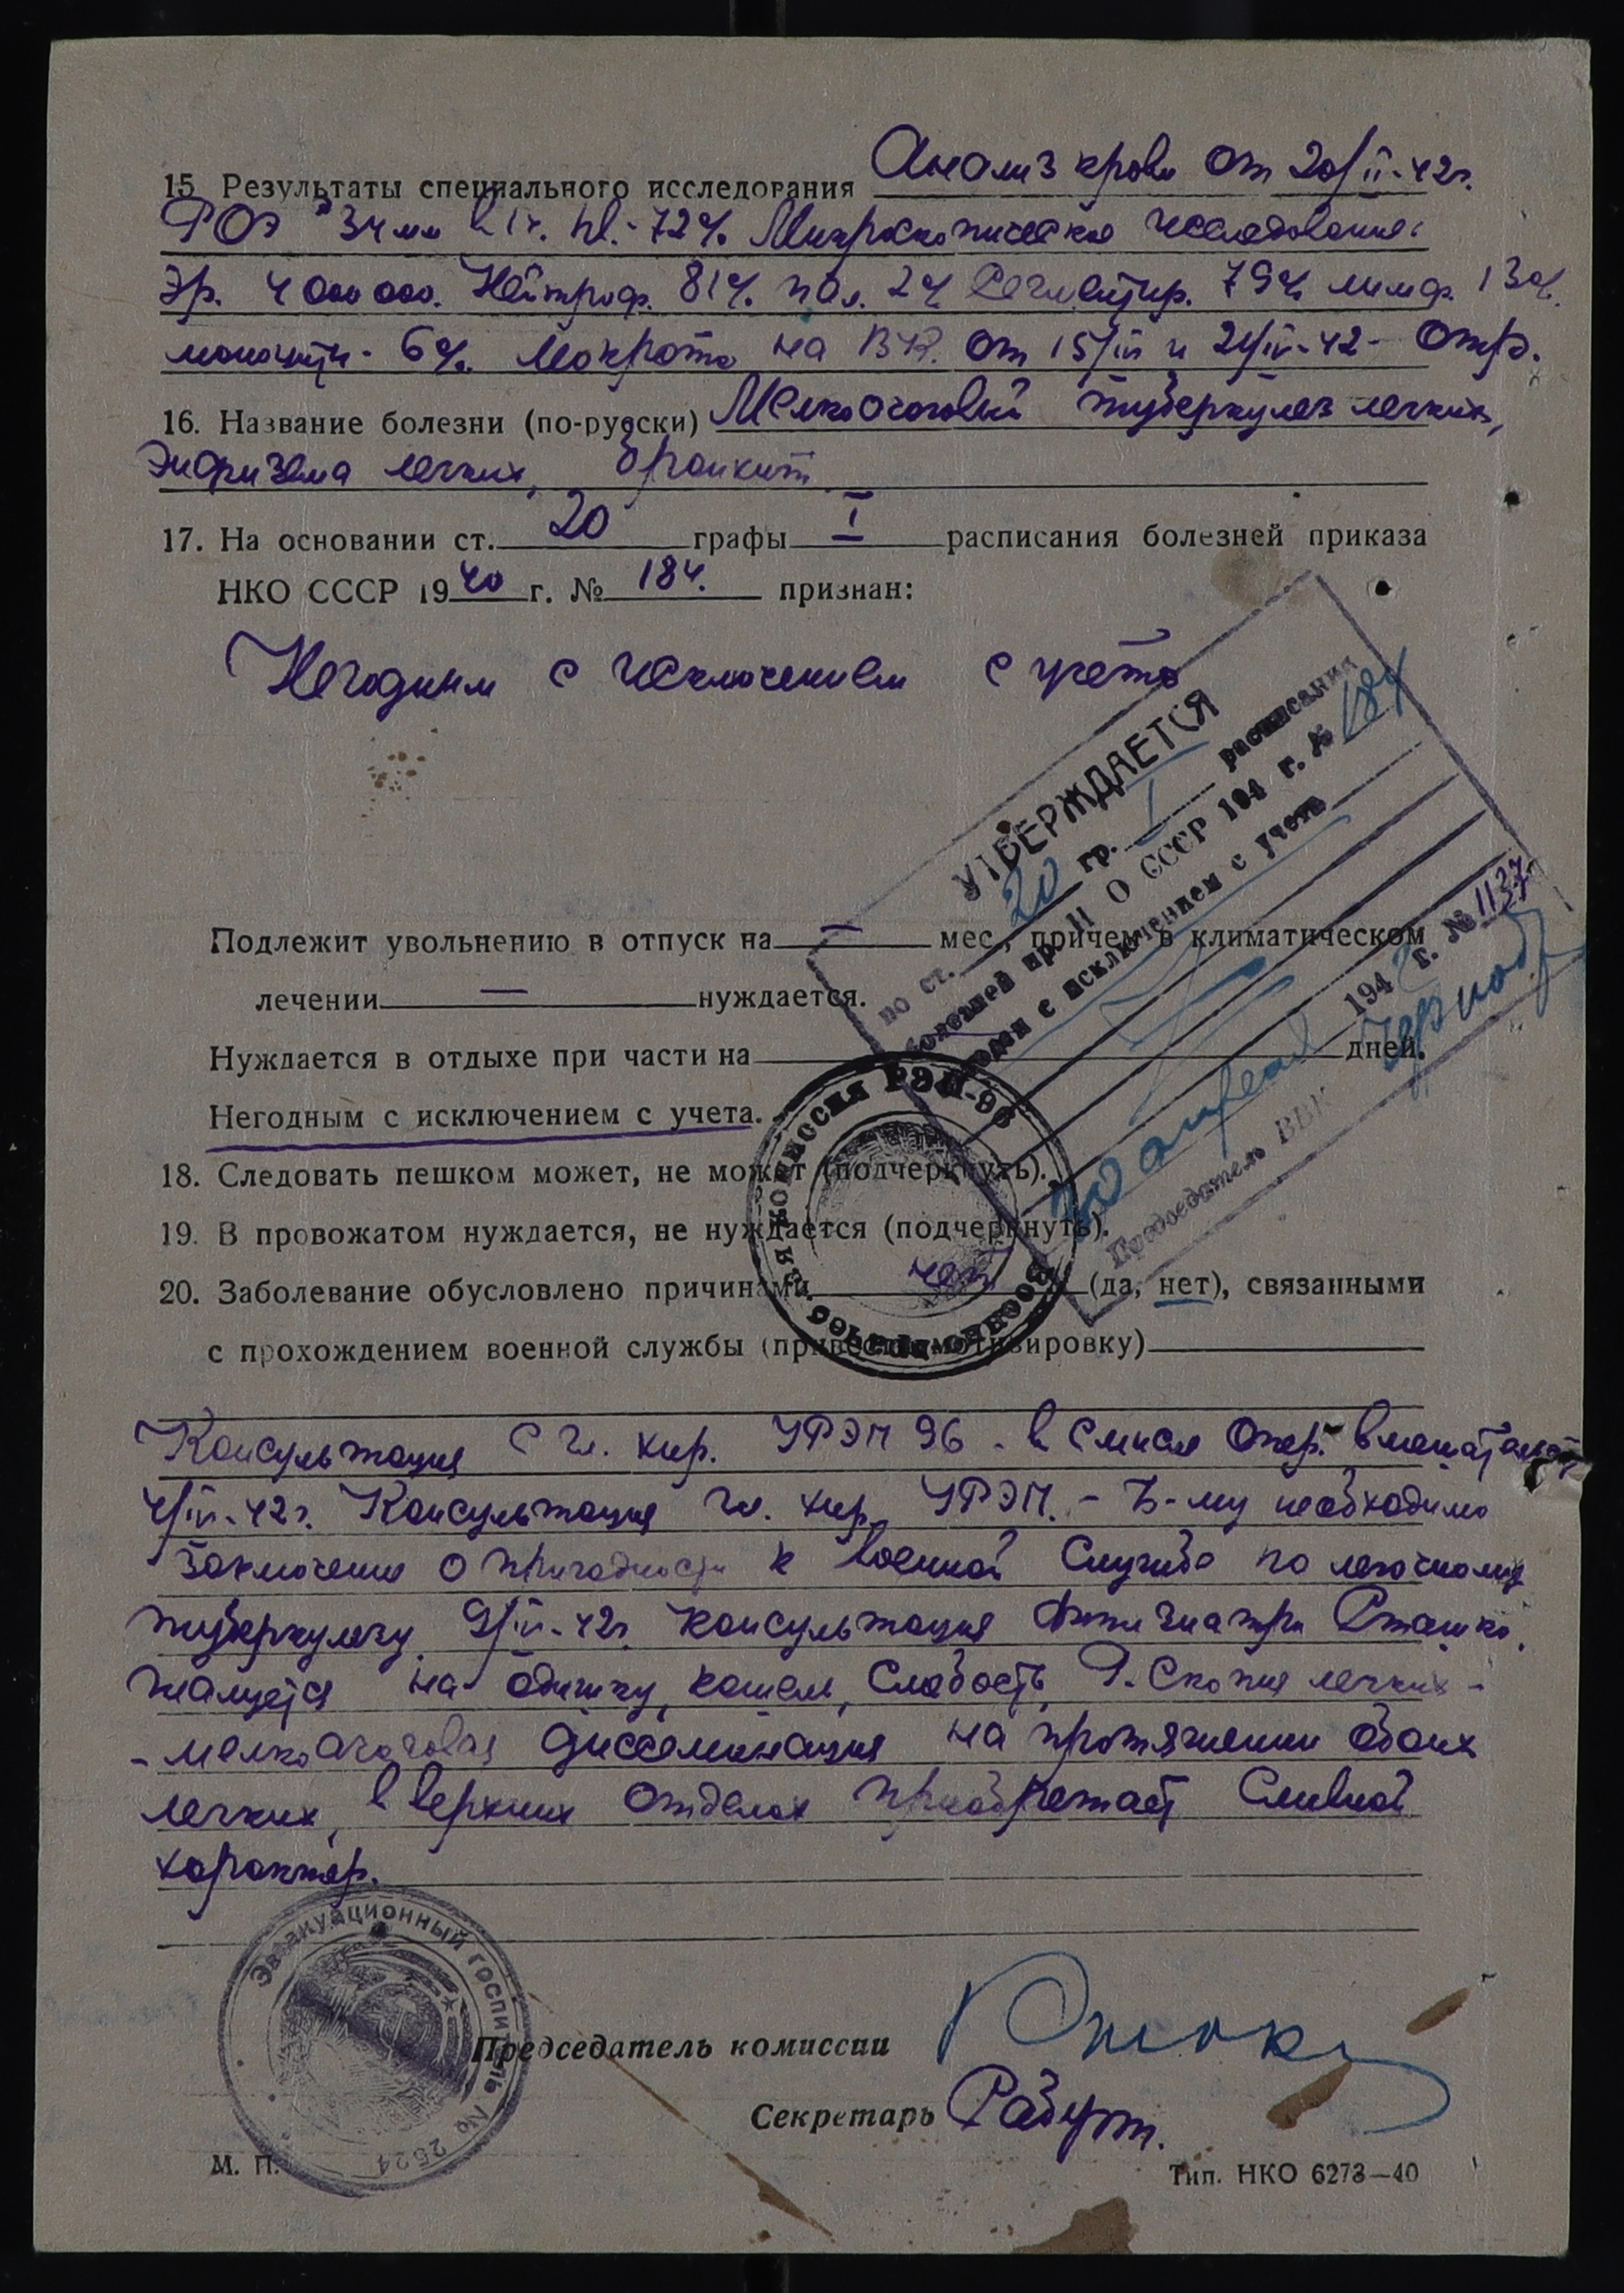 15. Результаты специального исследования Анализ крови от 20/II-42г.
РОЭ 34 мм в 1ч. Hb.-72% Микроскопическое исследование:
Эр. 4 000 000. Нейтроф. 81% пал. 2% Сегментир. 79% лимф. 13%.
моноциты - 6%. Мокрота на ВК. от 15/IV и 21/IV-42 - отр.
16. Название болезни (по-русски) Мелкоочаговый туберкулез легких,
Эмфизема легких, бронхит
17. На основании ст. 20 графы I расписания болезней приказа
НКО СССР 1940 г. № 184. признан:
Негодным с исключением с учета
УТВЕРЖДАЕТСЯ
по ст. 20 гр. I расписания
болезней пр. Н О СССР 194 г. № 184
годен с исключением с учета
20 апреля 1942 г. № 1137
Председатель ВВК
Подлежит увольнению в отпуск на — мес., причем в климатическом
лечении — нуждается.
Нуждается в отдыхе при части на дней.
Негодным с исключением с учета.
18. Следовать пешком может, не может (подчеркнуть).
19. В провожатом нуждается, не нуждается (подчеркнуть).
20. Заболевание обусловлено причинами нет (да, нет), связанными
с прохождением военной службы (привести мотивировку)
Военно-врачебная комиссия РЭП-96
Консультация с гл. хир. УРЭП 96 - в смысле опер. вмешательств
4/IV-42г. Консультация гл. хир. УРЭП. - Б-му необходимо
заключение о пригодности к военной службе по легочному
туберкулезу. 9/IV-42г. консультация фтизиатра
жалуется на одышку, кашель, слабость. Р.скопия легких -
- мелкоочаговая диссеминация на протяжении обоих
легких, в верхних отделах приобретает сливной
характер.
Эвакуационный госпиталь № 2524
Председатель комиссии
Секретарь
М. П.
Тип. НКО 6273—40